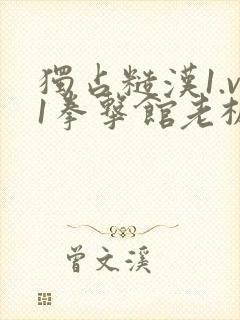 獨占糙漢1.v
1拳擊館老板
曾文溪